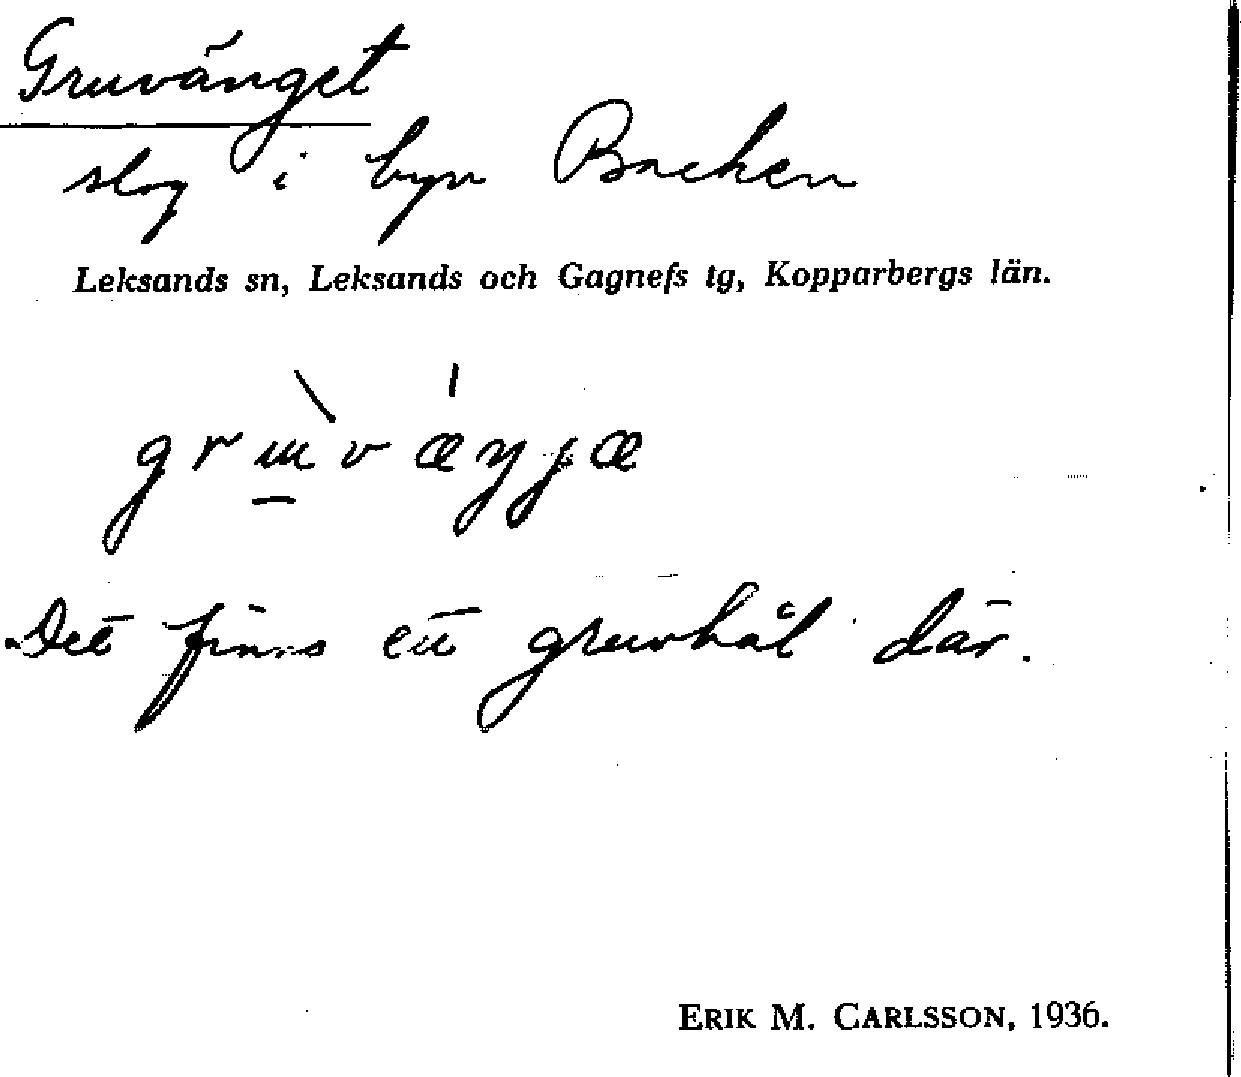 Gruvänget
slog i byn Backen
Leksands sn, Leksands och Gagnefs tg, Kopparbergs län.
Det finns ett gruvhål där.
ERIK M. CARLSSON, 1936.